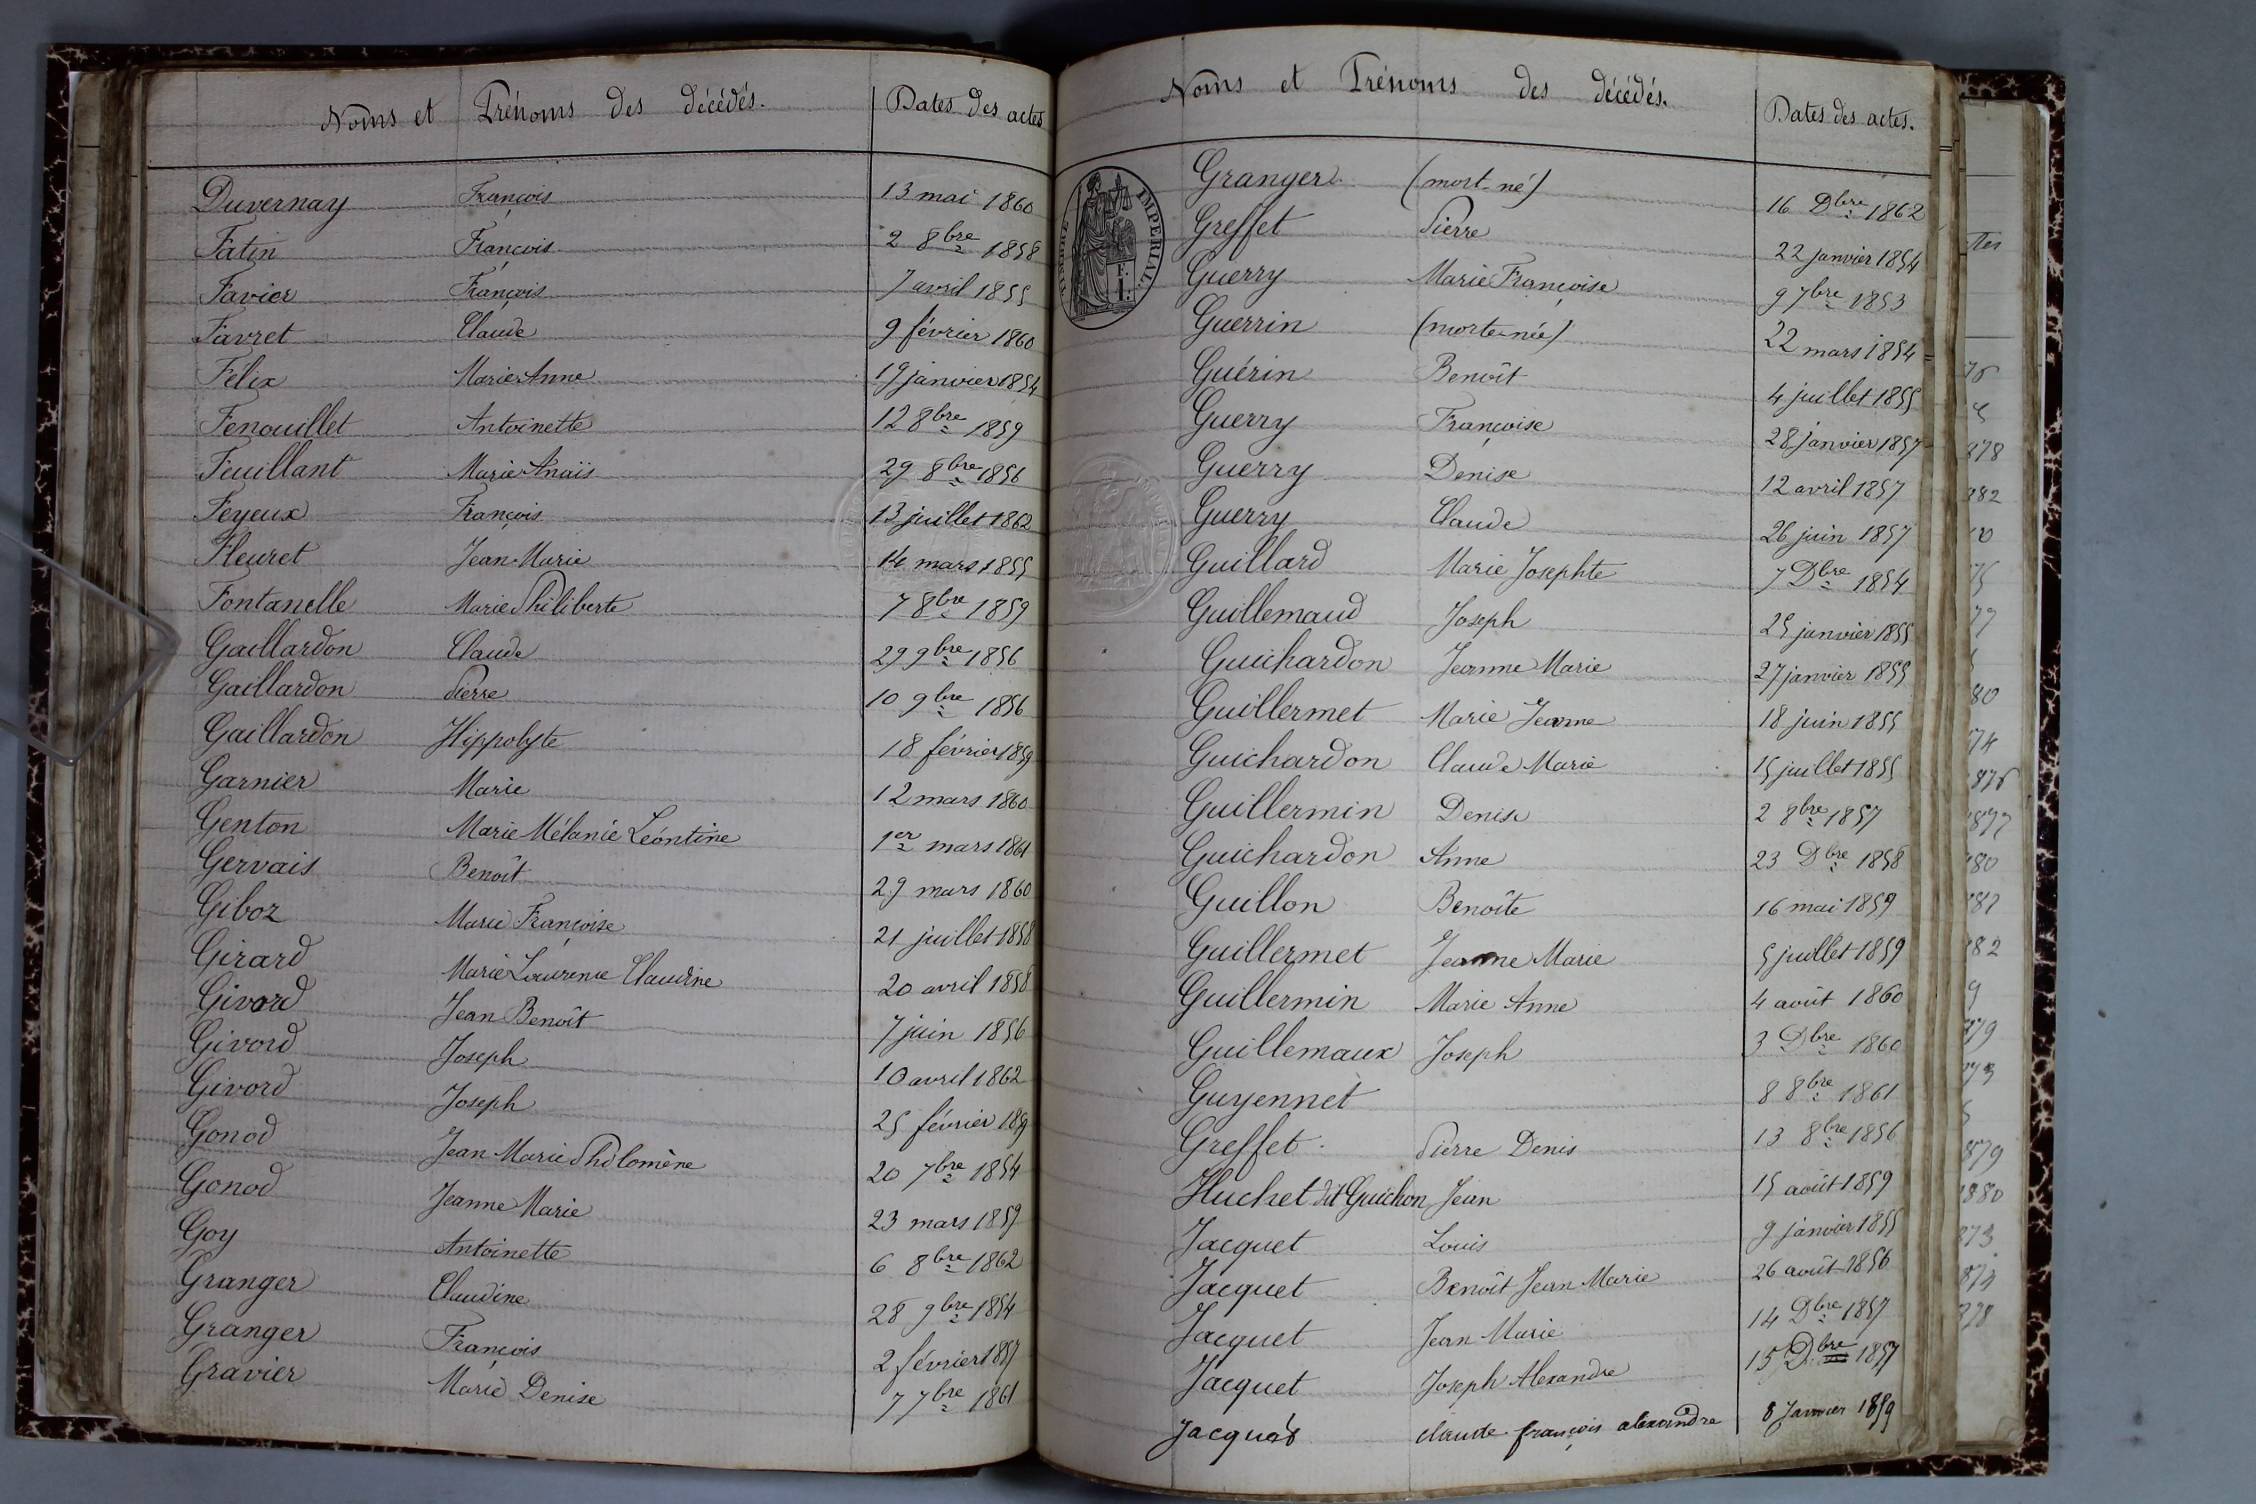 Noms et Prénoms des décédés. Dates des actes
Duvernay François 13 mai 1860
Fatin François 2 8bre 1858
Favier François 7 avril 1855
Favret Claude 9 février 1860
Félix Marie Anne 19 janvier 1854
Fenouillet Antoinette 12 8bre 1859
Feuillant Marie Anaïs 29 8bre 1856
Feyeux François 13 juillet 1862
Fleuret Jean-Marie 14 mars 1855
Fontanelle Marie Philiberte 7 8bre 1859
Gaillardon Claude 29 9bre 1856
Gaillardon Pierre 10 9bre 1856
Gaillardon Hippolyte 18 février 1859
Garnier Marie 12 mars 1860
Genton Marie Mélanie Léontine 1er mars 1861
Gervais Benoît 29 mars 1860
Giboz Marie Françoise 21 juillet 1858
Girard Marie Laurence Claudine 20 avril 1858
Givord Jean Benoît 7 juin 1856
Givord Joseph 10 avril 1862
Givord Joseph 25 février 1859
Gonod Jean Marie Philomène 20 7bre 1854
Gonod Jeanne Marie 23 mars 1859
Goy Antoinette 6 8bre 1862
Granger Claudine 28 9bre 1854
Granger François 2 février 1857
Gravier Marie Denise 7 7bre 1861
Noms et Prénoms des décédés. Dates des actes.
TIMBRE IMPERIAL
Granger (mort-né) 16 Dbre 1862
Greffet Pierre 22 janvier 1854
Guerry Marie Françoise 9 7bre 1853
Guerrin (morte-née) 22 mars 1854
Guérin Benoît 4 juillet 1855
Guerry Françoise 28 janvier 1857
Guerry Denise 12 avril 1857
Guerry Claude 26 juin 1857
Guillard Marie Josephte 7 Dbre 1854
Guillemaud Joseph 25 janvier 1855
Guichardon Jeanne Marie 27 janvier 1855
Guillermet Marie Jeanne 18 juin 1855
Guichardon Claude Marie 15 juillet 1855
Guillermin Denise 2 8bre 1857
Guichardon Anne 23 Dbre 1858
Guillon Benoîte 16 mai 1859
Guillermet Jeanne Marie 5 juillet 1859
Guillermin Marie Anne 4 août 1860
Guillemaux Joseph 3 Dbre 1860
Guyennet 8 8bre 1861
Greffet Pierre Denis 13 8bre 1856
Huchet dit Guichon Jean 15 août 1859
Jacquet Louis 9 janvier 1855
Jacquet Benoît Jean Marie 26 août 1856
Jacquet Jean Marie 14 Dbre 1857
Jacquet Joseph Alexandre 15 Dbre 1857
Jacquet claude françois alexandre 8 Janvier 1859